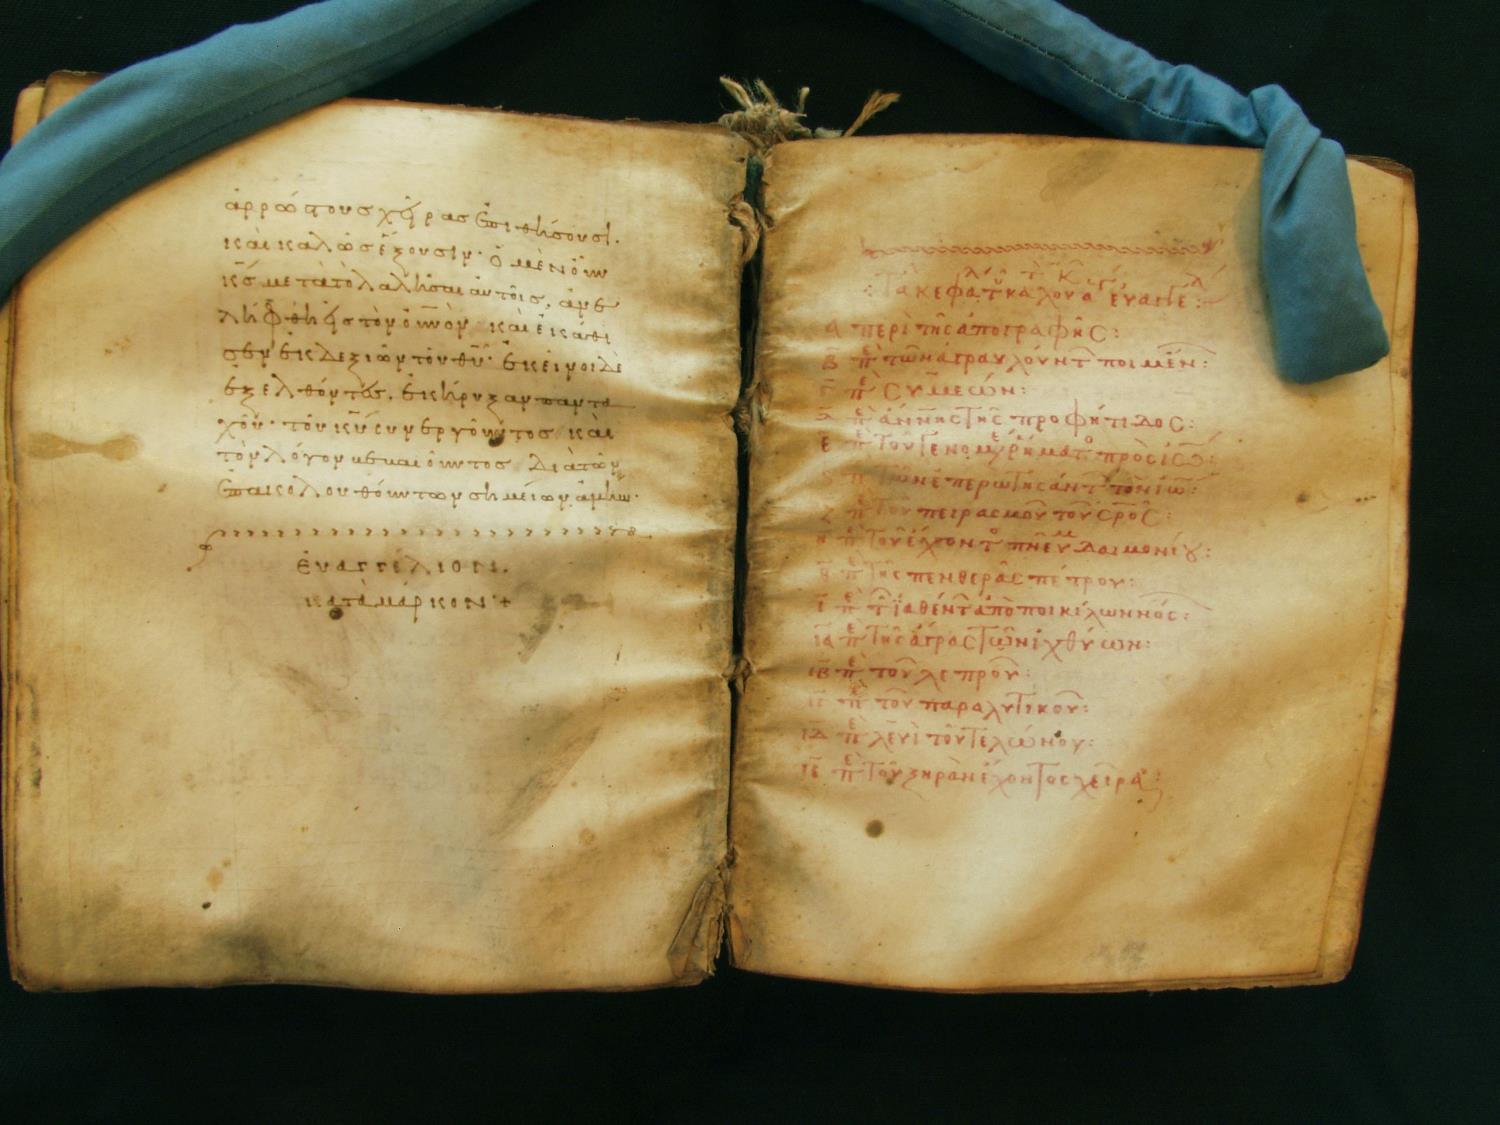 ἀρρώστους χεῖρας ἐπιθήσουσι·
καὶ καλῶς ἕξουσιν· ὁ μὲν οὖν
κ̅ς̅ μετὰ τὸ λαλῆσαι αὐτοῖς, ἀνε
λήφθη εἰς τὸν ο̅υ̅ν̅ο̅ν̅· καὶ ἐκάθι
σεν ἐκ δεξιῶν τοῦ θ̅υ̅· ἐκεῖνοι δὲ
ἐξελθόντες, ἐκήρυξαν παντα
χοῦ· τοῦ κ̅υ̅ συνεργοῦντος καὶ
τὸν λόγον βεβαιοῦντος διὰ τῶν
ἐπακολουθούντων σημείων. ἀμήν·
ἐυαγγέλιον.
κατὰ μάρκον +
Τὰ κεφα τοῦ κατὰ λουκ ἁγ ἐυαγγε
α περὶ τῆς ἀπογραφῆς:
β π̅ε τῶν ἀγραυλούντ ποιμέν:
γ π̅ε συμεών:
δ π̅ε ἄννης τῆς προφήτιδος:
ε π̅ε τοῦ γενομ ῥήματ πρὸς ἰω:
ς π̅ε τῶν ἐπερωτησάντ τὸν ἰω:
ζ π̅ε τοῦ πειρασμοῦ τοῦ σ̅ρ̅ο̅ς̅:
η π̅ε τοῦ ἔχοντ πνεῦμ δαιμονίου:
θ π̅ε τῆς πενθερᾶς πέτρου:
ι π̅ε τ ἰαθέντ ἀπὸ ποικίλων νόσ:
ια π̅ε τῆς ἄγρας τῶν ἰχθύων:
ιβ π̅ε τοῦ λεπροῦ:
ιγ π̅ε τοῦ παραλυτικοῦ:
ιδ π̅ε λευὶ τοῦ τελώνου:
ιε π̅ε τοῦ ξηρὰν ἔχοντος χεῖρα: